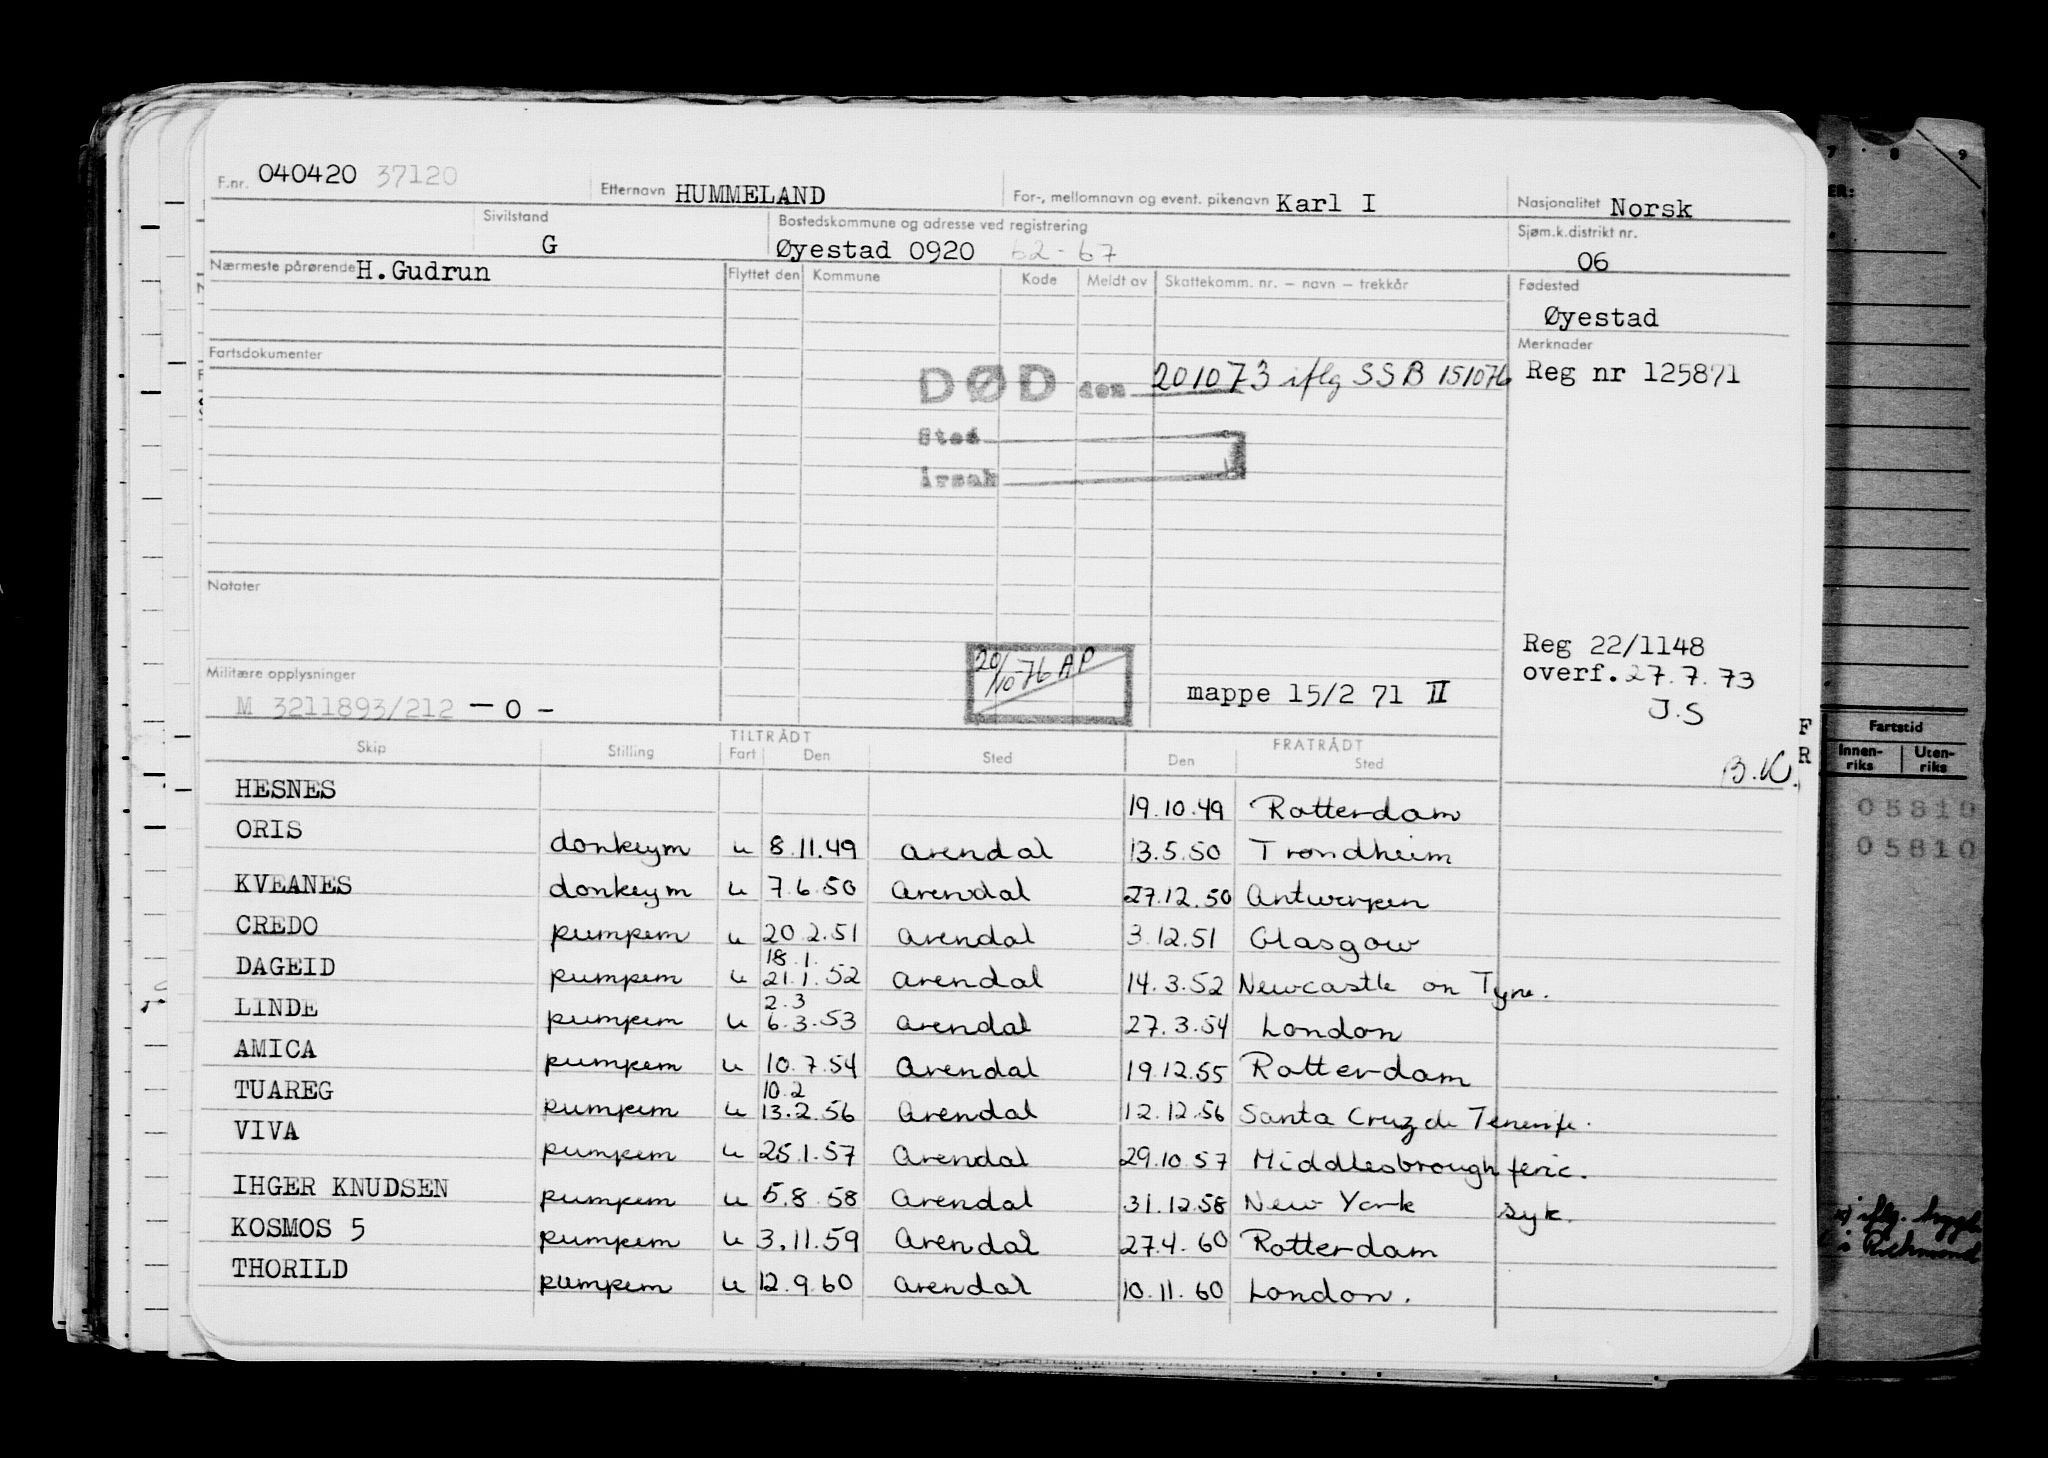 F.nr. 040420 37120 Etternavn HUMMELAND For-, mellomnavn og event. pikenavn Karl I Nasjonalitet Norsk
Sivilstand G Bostedskommune og adresse ved registrering Øyestad 0920 62-67 Sjøm.k.distrikt nr. 06
Nærmeste pårørende H.Gudrun Flyttet den Kommune Kode Meldt av Skattekomm. nr. – navn – trekkår Fødested
Øyestad
Fartsdokumenter Merknader
DØD den 201073 iflg SSB 151076 Reg nr 125871
Sted
Årsak
Notater
Reg 22/1148
overf. 27.7.73
J.S
Militære opplysninger 20/10-76 AP mappe 15/2 71 II
M 3211893/212 - O -
B.K.
Skip Stilling TILTRÅDT Fart Den Sted FRATRÅDT Den Sted
HESNES 19.10.49 Rotterdam
ORIS donkeym u 8.11.49 Arendal 13.5.50 Trondheim
KVEANES donkeym u 7.6.50 Arendal 27.12.50 Antwerpen
CREDO pumpem u 20 2.51 Arendal 3.12.51 Glasgow
18.1.
DAGEID pumpem u 21.1.52 Arendal 14.3.52 Newcastle on Tyne.
2.3
LINDE pumpem u 6.3.53 Arendal 27.3.54 London
AMICA pumpem u 10.7.54 Arendal 19.12.55 Rotterdam
10.2
TUAREG pumpem u 13.2.56 Arendal 12.12.56 Santa Cruz de Tenerife.
VIVA pumpem u 25.1.57 Arendal 29.10.57 Middlesbrough ferie.
IHGER KNUDSEN pumpem u 5.8.58 Arendal 31.12.58 New York syk.
KOSMOS 5 pumpem u 3.11.59 Arendal 27.4.60 Rotterdam
THORILD pumpem u 12.9.60 Arendal 10.11.60 London.
7 8 9
ER:
F
R
Fartstid
Innen-riks Uten-riks
05810
05810
iflg.
i Richmond